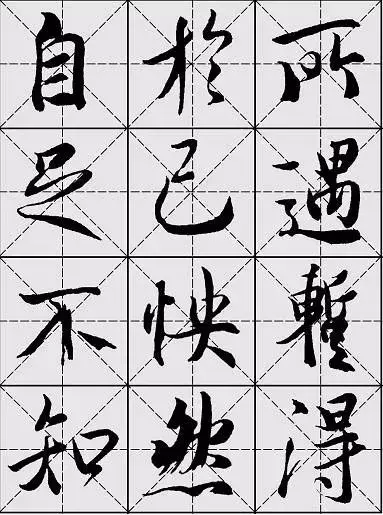 所遇暫得
於己怏然
自足不知